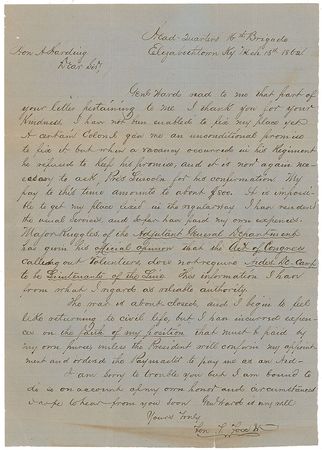 Head-Quarters 16th Brigade
Elizabethtown Ky. Mch 15th 1862
Hon A. Harding
Dear Sir,
Genl Ward read to me that part of
your letter pertaining to me. I thank you for your
kindness. I have not been enabled to fix my place yet.
A certain Colonel gave me an unconditional promise
to fix it but when a vacancy occurred in his Regiment
he refused to keep his promise, and it is now again nec-
essary to ask Pres. Lincoln for his confirmation. My
pay to this time amounts to about $800. It is impossi-
ble to get my place used in the regular way. I have rendered
the usual services and so far have paid my own expenses.
Major Ruggles of the Adjutant General Department
has given his official opinion that the Act of Congress
calling out Volunteers does not require Aides-de-Camp
to be Lieutenants of the Line. This information I have
from what I regard as reliable authority.
The war is about closed, and I begin to feel
like returning to civil life, but I have incurred expen-
ces on the faith of my position that must be paid by
my own purse unless the President will confirm my appoint-
ment and ordered the Paymaster to pay me as an Aid-
I am sorry to trouble you but I am bound to
do so on account of my own honor and circumstances
I hope to hear from you soon. Gen Ward is very well
Yours Truly